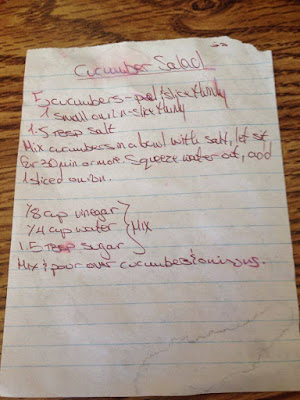 Cucumber Salad
5 cucumbers - peel & slice thinly
1 small onion - slice thinly
1.5 tesp salt
Mix cucumbers in a bowl with salt, let sit
for 30 min or more Squeeze water out, add
1 sliced onion.
1/8 cup vinegar
1/4 cup water } Mix
1.5 tesp sugar
Mix & pour over cucumbers & onions.